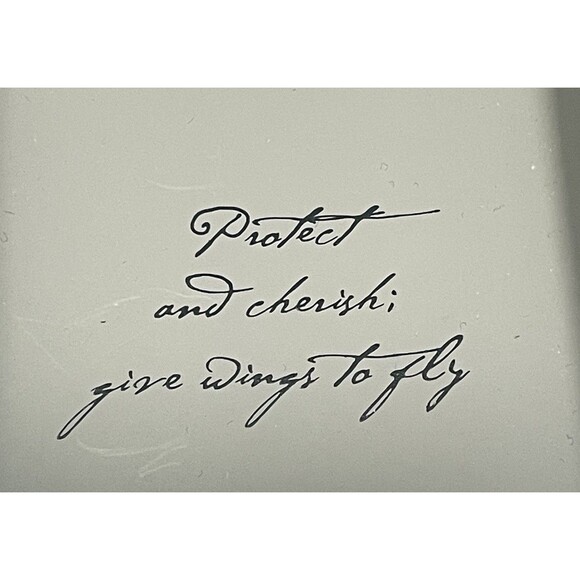 Protect
and cherish;
give wings to fly